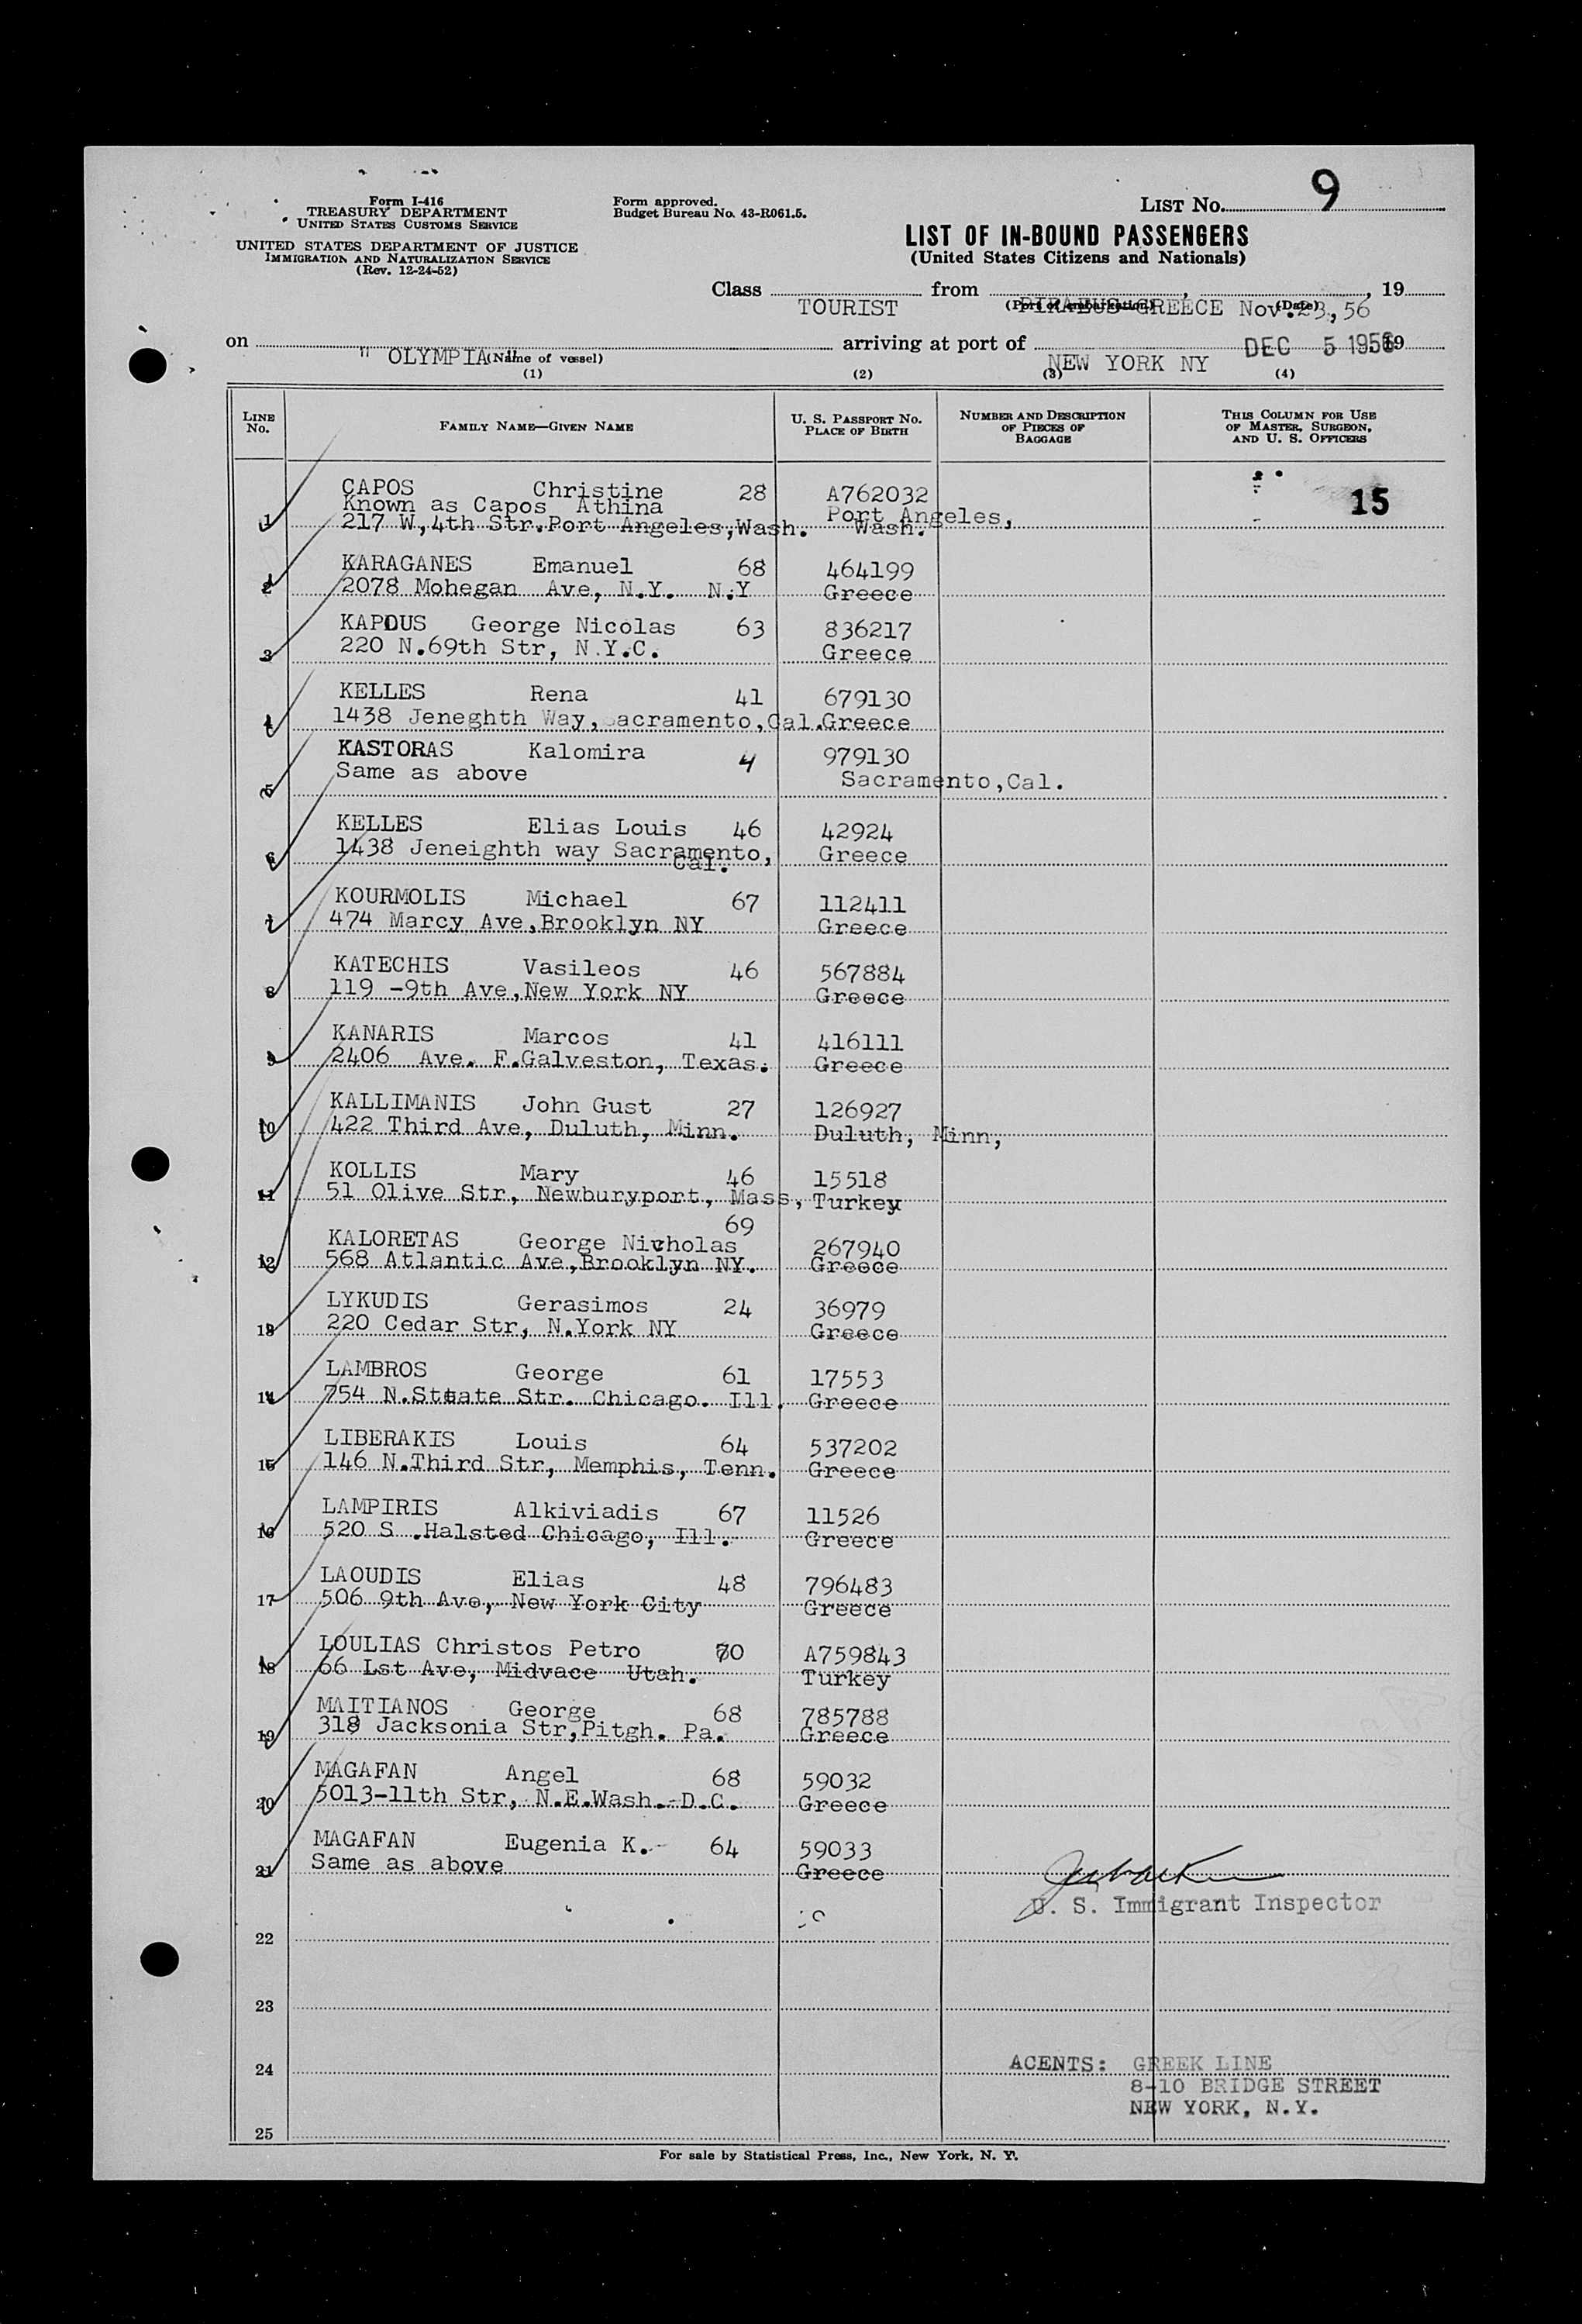 Form I-416
TREASURY DEPARTMENT
UNITED STATES CUSTOMS SERVICE
UNITED STATES DEPARTMENT OF JUSTICE
IMMIGRATION AND NATURALIZATION SERVICE
(Rev. 12-24-52)
Form approved.
Budget Bureau No. 43-R061.5.
LIST No. 9
LIST OF IN-BOUND PASSENGERS
(United States Citizens and Nationals)
Class TOURIST from PIRAEUS GREECE Nov. 23, 19 56
(Port of embarkation) (Date)
on " OLYMPIA " arriving at port of NEW YORK NY DEC 5 1956 19
(Name of vessel)
(1) (2) (3) (4)
LINE No. FAMILY NAME—GIVEN NAME U. S. PASSPORT No. PLACE OF BIRTH NUMBER AND DESCRIPTION OF PIECES OF BAGGAGE THIS COLUMN FOR USE OF MASTER, SURGEON, AND U. S. OFFICERS
CAPOS Christine 28 A762032 15
Known as Capos Athina Port Angeles,
1 217 W,4th Str.Port Angeles,Wash. Wash.
KARAGANES Emanuel 68 464199
2 2078 Mohegan Ave, N.Y. N.Y Greece
KAPOUS George Nicolas 63 836217
3 220 N.69th Str, N.Y.C. Greece
KELLES Rena 41 679130
4 1438 Jeneghth Way, acramento,Cal. Greece
KASTORAS Kalomira 4 979130
5 Same as above Sacramento,Cal.
KELLES Elias Louis 46 42924
6 1438 Jeneighth way Sacramento, Cal. Greece
KOURMOLIS Michael 67 112411
7 474 Marcy Ave,Brooklyn NY Greece
KATECHIS Vasileos 46 567884
8 119 -9th Ave,New York NY Greece
KANARIS Marcos 41 416111
9 2406 Ave. F.Galveston, Texas. Greece
KALLIMANIS John Gust 27 126927
10 422 Third Ave, Duluth, Minn. Duluth, Minn,
KOLLIS Mary 46 15518
11 51 Olive Str, Newburyport, Mass, Turkey
69
KALORETAS George Nicholas 267940
12 568 Atlantic Ave,Brooklyn NY. Greece
LYKUDIS Gerasimos 24 36979
13 220 Cedar Str, N.York NY Greece
LAMBROS George 61 17553
14 754 N.Sttate Str. Chicago. Ill. Greece
LIBERAKIS Louis 64 537202
15 146 N.Third Str, Memphis, Tenn. Greece
LAMPIRIS Alkiviadis 67 11526
16 520 S .Halsted Chicago, Ill. Greece
LAOUDIS Elias 48 796483
17 506 9th Ave, New York City Greece
LOULIAS Christos Petro 70 A759843
18 66 Lst Ave, Midvace Utah. Turkey
MAITIANOS George 68 785788
19 318 Jacksonia Str,Pitgh. Pa. Greece
MAGAFAN Angel 68 59032
20 5013-11th Str, N.E.Wash.-D.C. Greece
MAGAFAN Eugenia K. 64 59033
21 Same as above Greece
U. S. Immigrant Inspector
22
23
24
ACENTS: GREEK LINE
8-10 BRIDGE STREET
NEW YORK, N.Y.
25
For sale by Statistical Press, Inc., New York, N. Y.